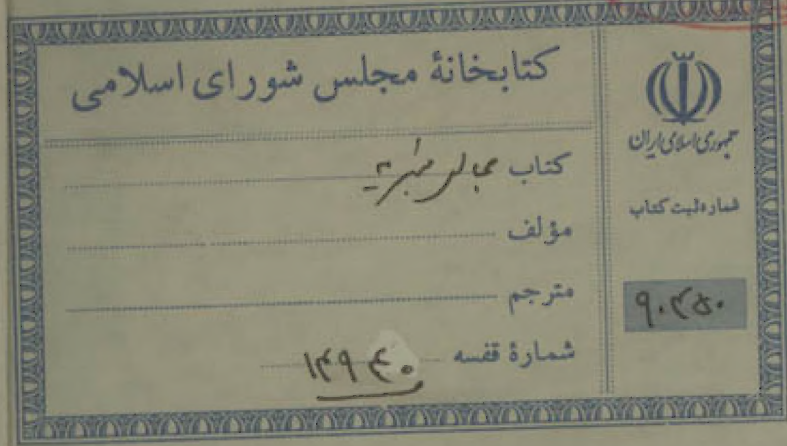 کتابخانهٔ مجلس شورای اسلامی
کتاب مجالس
مؤلف
مترجم
شمارهٔ قفسه ۱۴۹۴۰
جمهوری اسلامی ایران
شماره ثبت کتاب
۹۰۴۵۰